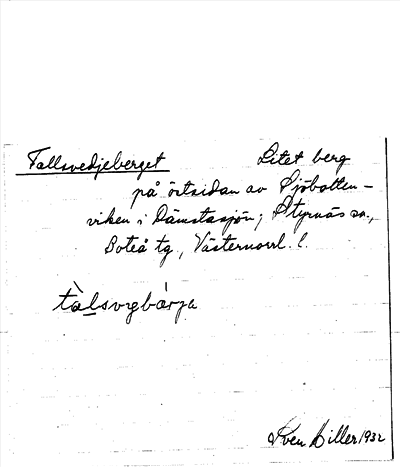 Tallsvedjeberget Litet berg
på östsidan av Sjöbotten-
viken i Dämstasjön; Styrnäs sn.,
Boteå tg, Västernorrl. l.
tàlsvgbárja
Sven Hiller 1932